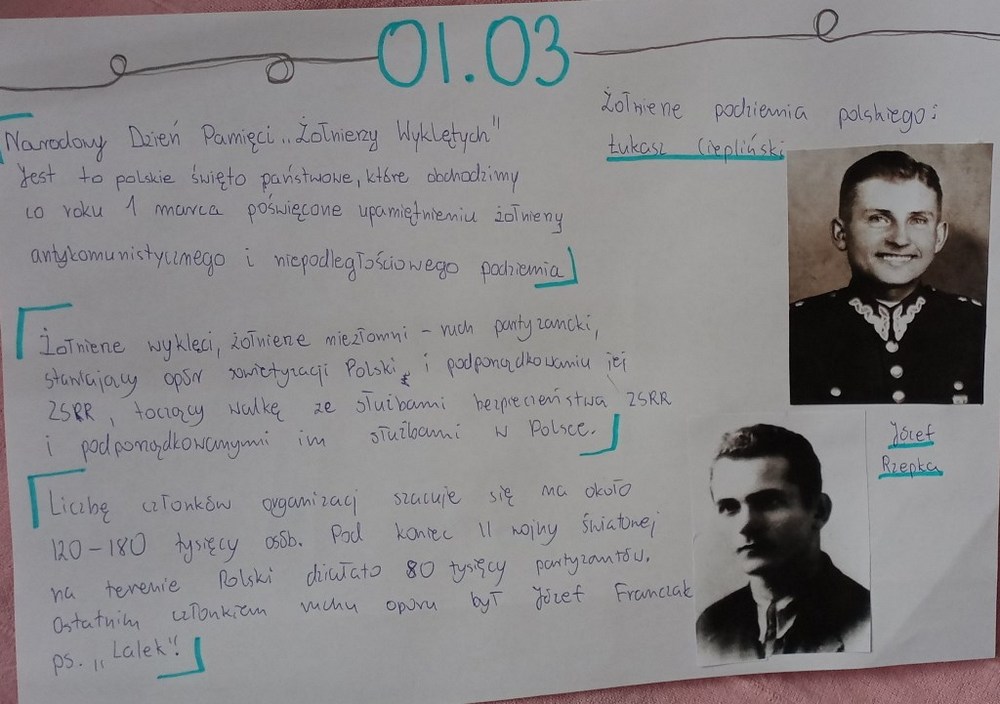 01.03
Narodowy Dzień Pamięci „Żołnierzy Wyklętych"
Jest to polskie święto państwowe, które obchodzimy
co roku 1 marca poświęcone upamiętnieniu żołnierzy
antykomunistycznego i niepodległościowego podziemia
Żołnierze wyklęci, żołnierze niezłomni – ruch partyzancki,
stawiający opór sowietyzacji Polski i podporządkowaniu jej
ZSRR, toczący walkę ze służbami bezpieczeństwa ZSRR
i podporządkowanymi im służbami w Polsce.
Liczbę członków organizacj szacuje się na około
120–180 tysięcy osób. Pod koniec II wojny światowej
na terenie Polski działało 80 tysięcy partyzantów.
Ostatnim członkiem ruchu oporu był Józef Franczak
ps. „Lalek".
Żołnierze podziemia polskiego:
Łukasz Ciepliński
Józef
Rzepka